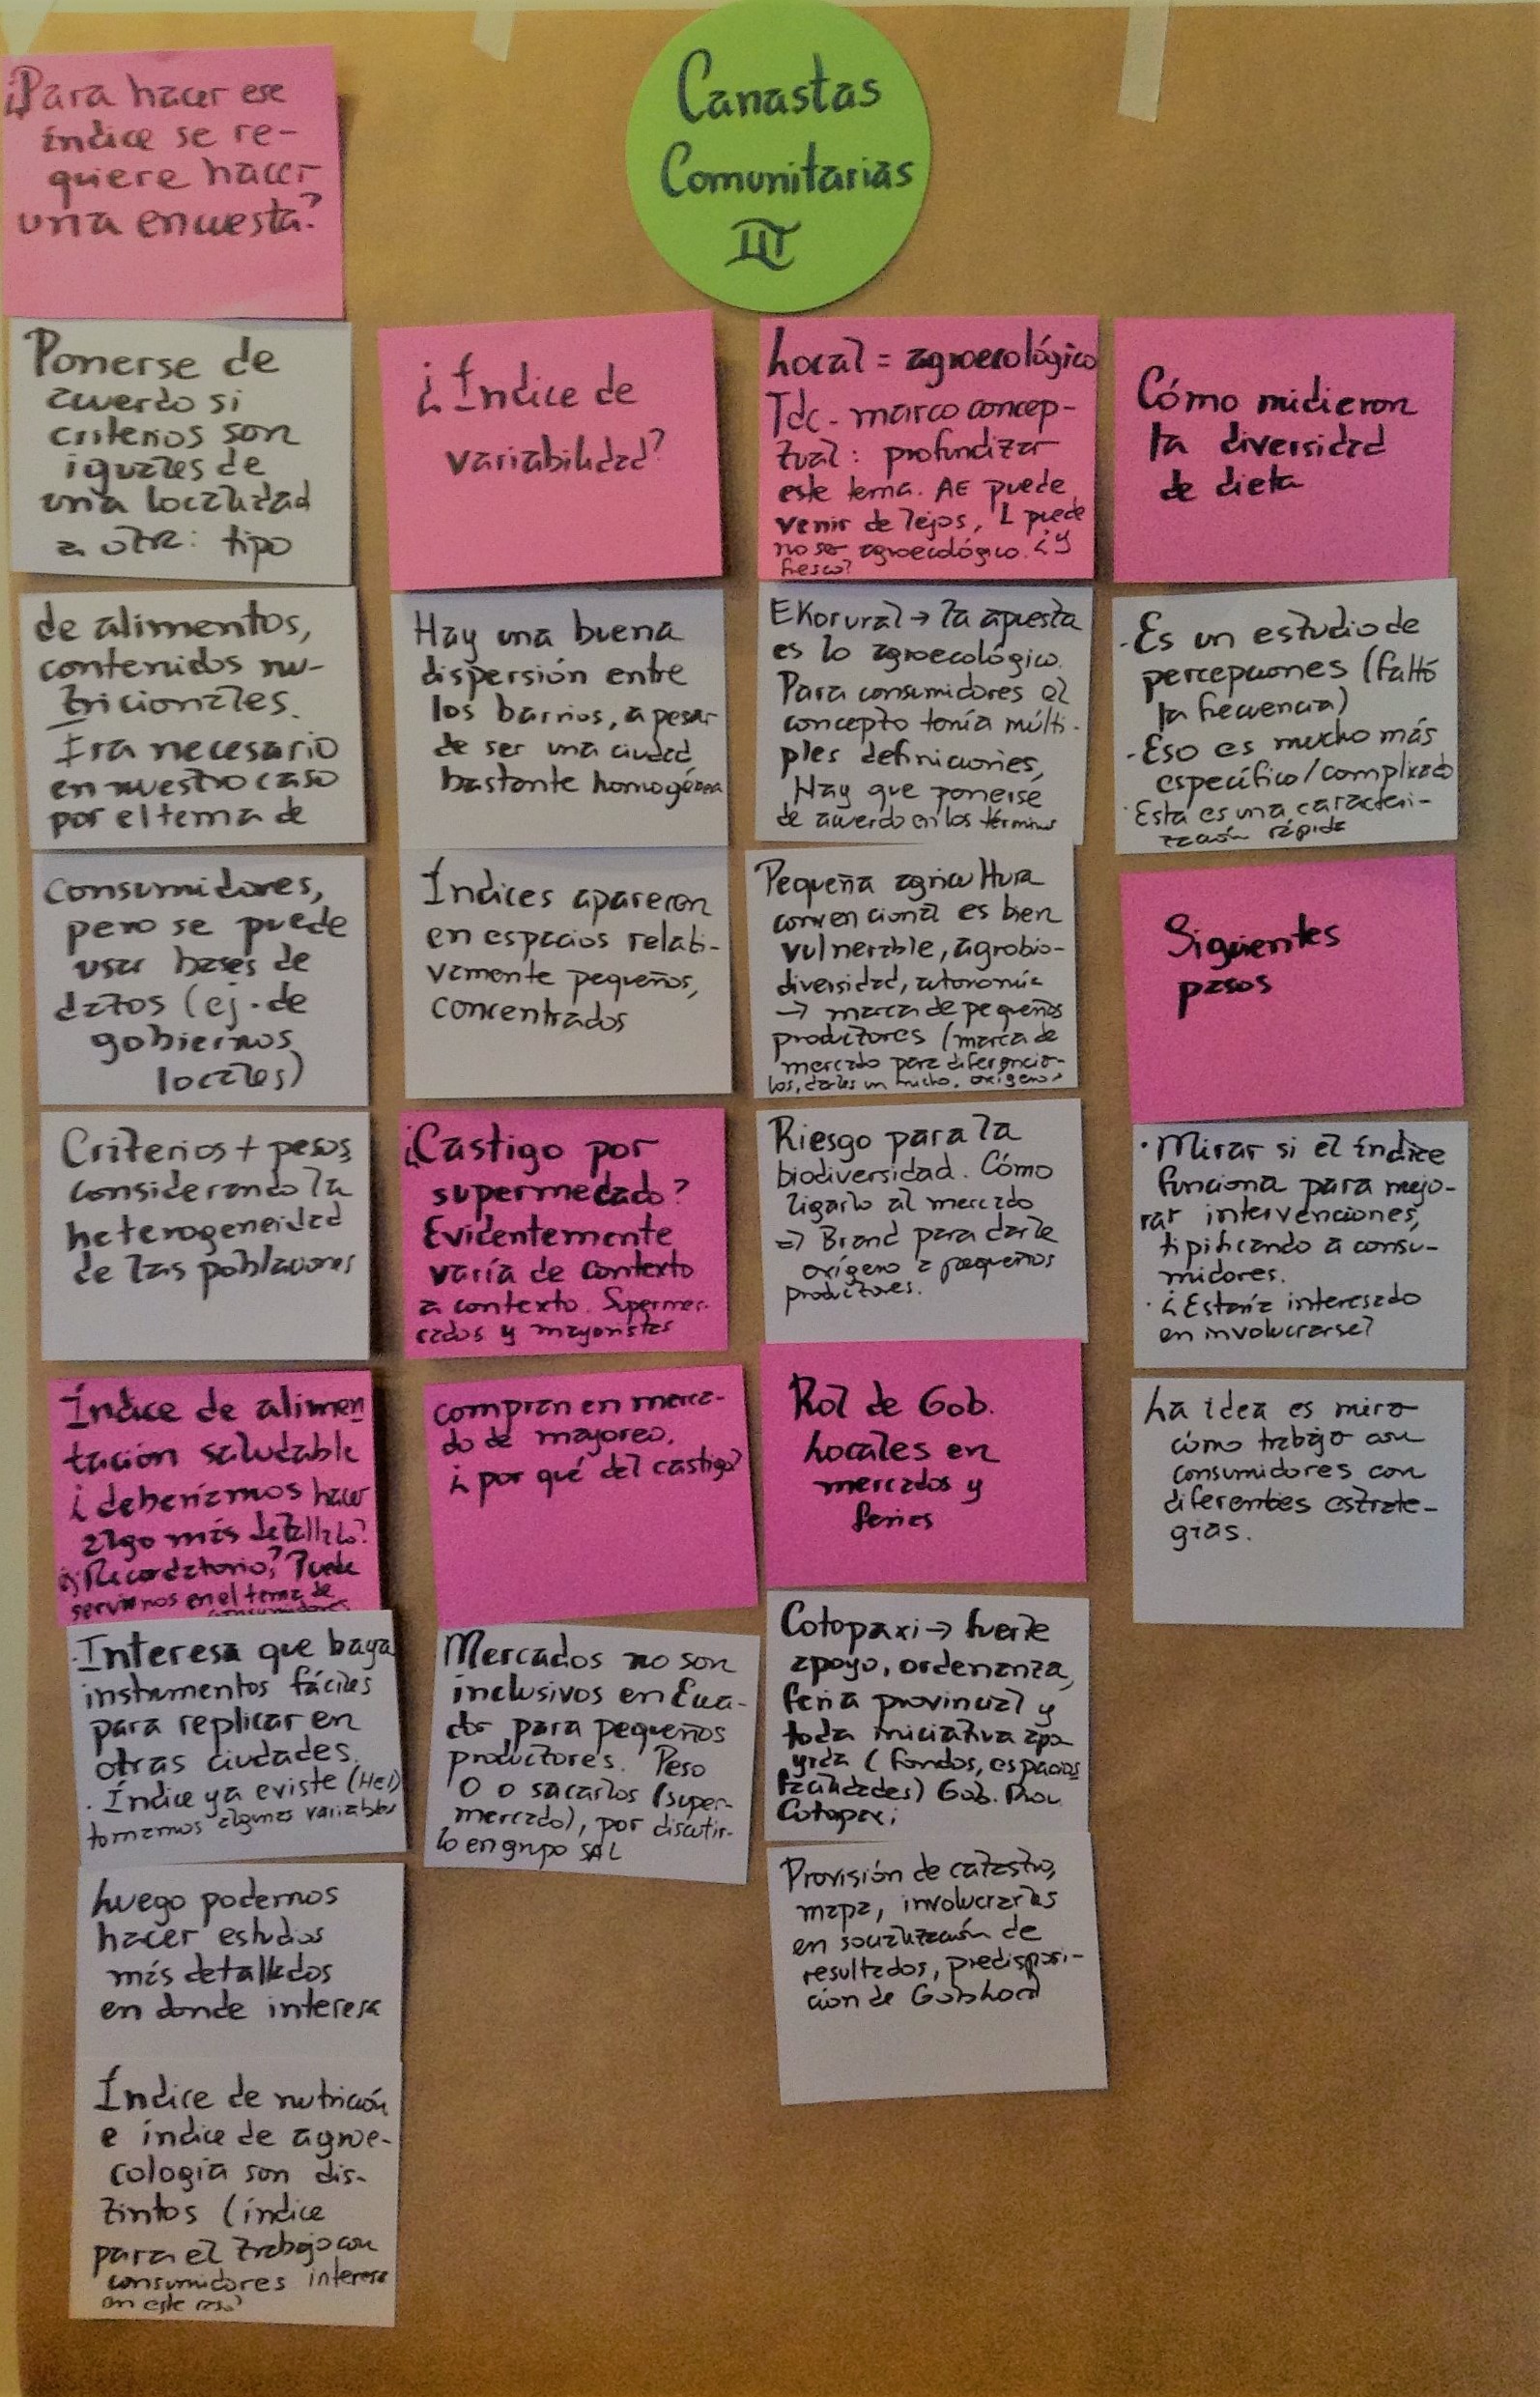 Canastas
Comunitarias
III
¿Para hacer ese
índice se re-
quiere hacer
una encuesta?
Ponerse de
acuerdo si
criterios son
iguales de
una localidad
a otra: tipo
de alimentos,
contenidos nu-
tricionales.
Era necesario
en nuestro caso
por el tema de
consumidores,
pero se puede
usar bases de
datos (ej. de
gobiernos
locales)
Criterios + pesos,
considerando la
heterogeneidad
de las poblaciones
Índice de alimen
tación saludable
¿deberíamos hacer
algo más detallado?
¿Recordatorio? Puede
servirnos en el tema de
consumidores
·Interesa que haya
instrumentos fáciles
para replicar en
otras ciudades.
· Índice ya existe (HeI)
tomamos algunas variables
Luego podemos
hacer estudios
más detallados
en donde interesa
Índice de nutrición
e índice de agroe-
cología son dis-
tintos (índice
para el trabajo con
consumidores interesa
en este caso)
¿Índice de
variabilidad?
Hay una buena
dispersión entre
los barrios, a pesar
de ser una ciudad
bastante homogénea
Índices aparecen
en espacios relati-
vamente pequeños,
concentrados
¿Castigo por
supermecado?
Evidentemente
varía de contexto
a contexto. Supermer-
cados y mayoristas
compran en merca-
do de mayoreo.
¿por qué del castigo?
Mercados no son
inclusivos en Ecua-
dor para pequeños
productores. Peso
0 o sacarlos (super-
mercado), por discutir-
lo en grupo SAL
Local = agroecológico
Tdc - marco concep-
tual: profundizar
este tema. AE puede
venir de lejos, L puede
no ser agroecológico. ¿Y
fresco?
EKorural → la apuesta
es lo agroecológico.
Para consumidores el
concepto tenía múlti-
ples definiciones,
Hay que ponerse
de acuerdo en los términos
Pequeña agricultura
convencional es bien
vulnerable, agrobio-
diversidad, autonomía
→ marca de pequeños
productores (marca de
mercado para diferenciar-
los, darles un nicho, oxígeno)
Riesgo para la
biodiversidad. Cómo
ligarlo al mercado
⇒ Brand para darle
oxígeno a pequeños
productores.
Rol de Gob.
Locales en
mercados y
ferias
Cotopaxi → fuerte
apoyo, ordenanza,
feria provincial y
toda iniciativa apo
yada (fondos, espacios
facilidades) Gob. Prov.
Cotopaxi
Provisión de catastro,
mapa, involucrarles
en socialización de
resultados, predisposi-
cion de Gob Local
Cómo midieron
la diversidad
de dieta
·Es un estudio de
percepciones (faltó
la frecuencia)
-Eso es mucho más
específico/complicado
·Esta es una caracteri-
zación rápida
Siguientes
pasos
· Mirar si el índice
funciona para mejo-
rar intervenciones,
tipificando a consu-
midores.
· ¿Estaría interesado
en involucrarse?
La idea es mirar
cómo trabajo con
consumidores con
diferentes estrate-
gias.